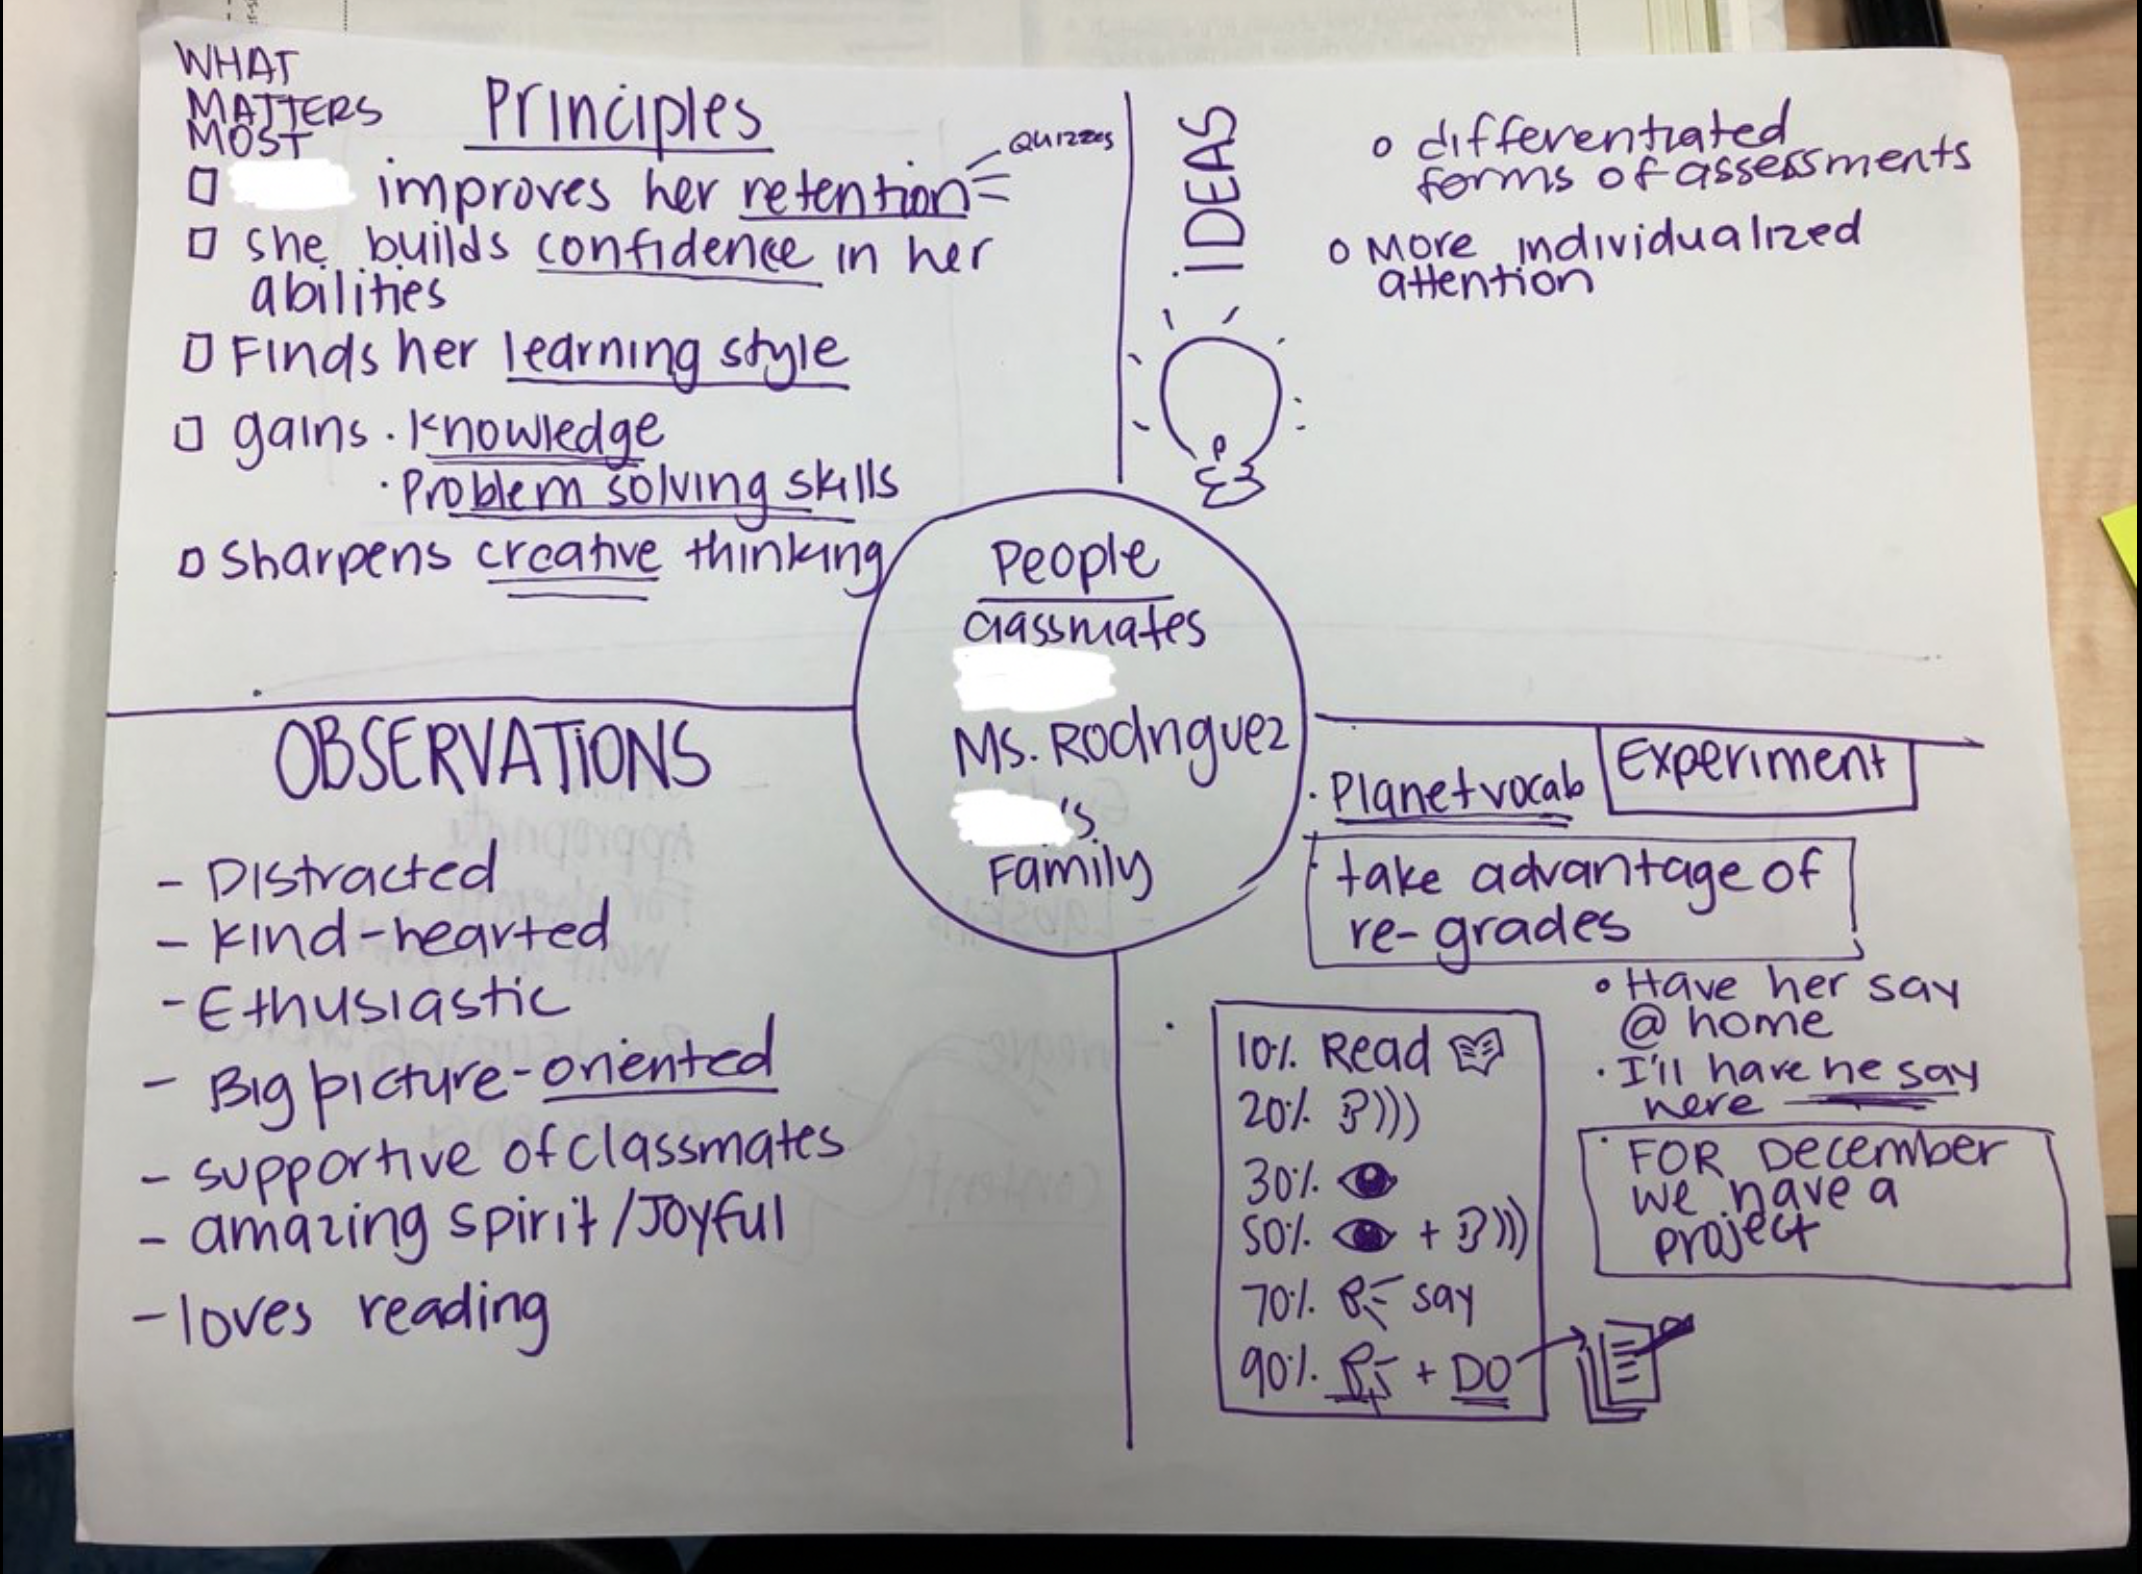 WHAT
MATTERS
MOST
Principles
Quizzes
improves her retention
she builds confidence in her
abilities
Finds her learning style
gains · knowledge
· Problem solving skills
sharpens creative thinking
IDEAS
differentiated
forms of assessments
More individualized
attention
People
classmates
Ms. Rodriguez
's
Family
OBSERVATIONS
- Distracted
- Kind-hearted
- Ethusiastic
- Big picture-oriented
- supportive of classmates
- amazing spirit/Joyful
- loves reading
Experiment
· Planet vocab
· take advantage of
re-grades
• Have her say
@ home
· I'll have he say
here
· FOR December
we have a
project
10% Read
20%
30%
50% +
70% say
90% + DO